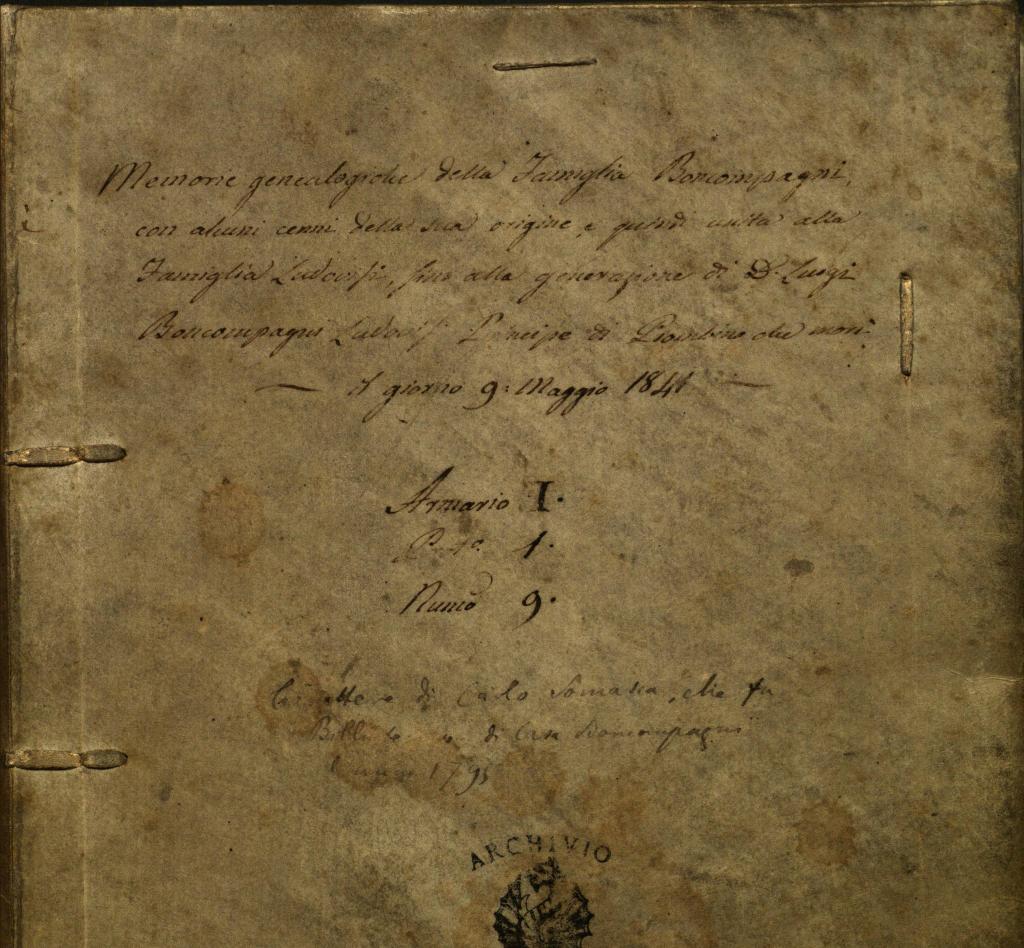 Memorie genealogiche della Famiglia Boncompagni,
con alcuni cenni della sua origine, e quindi unita alla
Famiglia Ludovisi, fino alla generazione di D. Luigi
Boncompagni Ludovisi Principe di Piombino che morì
— il giorno 9: Maggio 1841 —
Armario I.
Prot.o 1.
Numo 9.
Carattere di Carlo Somasca, che fu
di Casa Boncompagni
1795
ARCHIVIO